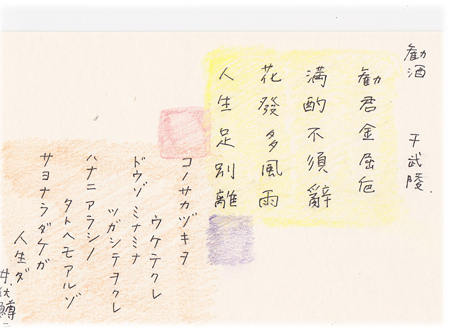 勸酒
于武陵
勸君金屈卮
満酌不須辭
花發多風雨
人生足別離
コノサカヅキヲ
ウケテクレ
ドウゾミナミナ
ツガシテヲクレ
ハナニアラシノ
タトヘモアルゾ
サヨナラダケガ
人生ダ
井伏鱒